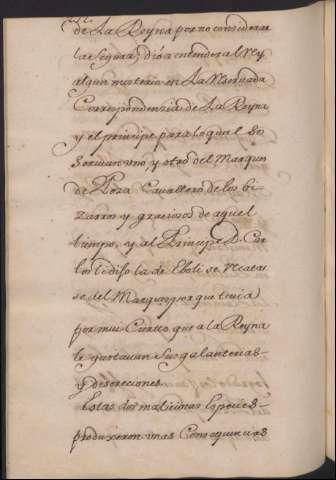 de La Reyna por no considerar
la segura; dió a entender al Rey
algun misterio en La reseruada
Correspondenzia de La Reyna
y el principe para lo qual se
seruian uno y otro del Marques
de Poza Cavallero de los bi
zarros y graciosos de aquel
tiempo, y al Principe D. Car
los le dijo la de Eboli se recatas
se del Marques porque tenia
por mui cierto que a la Reyna
le gustauan sus galanterias
y discreciones.
Estas dos maliciosas Especies
produxeron unas Consequencias